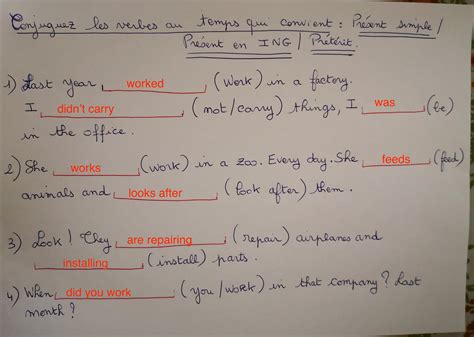 Conjuguez les verbes au temps qui convient : Présent simple /
Présent en ING / Prétérit.
1) Last year worked (work) in a factory.
I didn't carry (not/carry) things, I was (be)
in the office.
2) She works (work) in a zoo. Every day. She feeds (feed)
animals and looks after (look after) them.
3) Look! They are repairing (repair) airplanes and
installing (install) parts.
4) When did you work (you/work) in that company? Last
month?